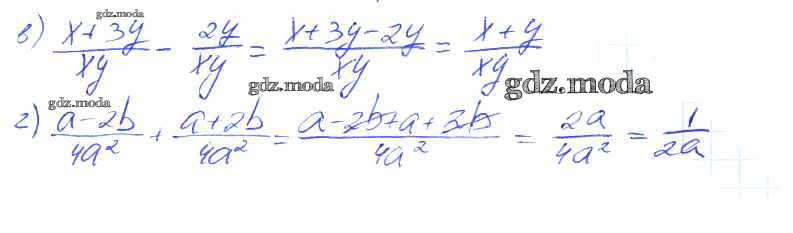 gdz.moda
в) (x + 3y)/(xy) - (2y)/(xy) = (x + 3y - 2y)/(xy) = (x + y)/(xy)
gdz.moda
gdz.moda
gdz.moda
г) (a - 2b)/(4a²) + (a + 2b)/(4a²) = (a - 2b + a + 2b)/(4a²) = (2a)/(4a²) = 1/(2a)